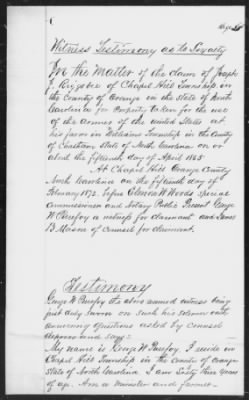 Witness Testimony as to Loyalty
In the Matter of the claim of Joseph
J. Rigsbee of Chapel Hill Township in
the County of Orange in the State of North
Carolina for Property taken for the use
of the Armies of the United States at
his farm in Williams Township in the County
of Chatham State of North Carolina on or
about the fifteenth day of April 1865
At Chapel Hill Orange County
North Carolina on the fifteenth day of
February 1872 before Clement W Woods special
Commissioner and Notary Public Present George
W Purefoy a witness for claimant and James
B Mason of Counsel for claimant.
Testimony
George W Purefoy the above named witness being
first duly sworn on such his solemn oath
answering questions asked by counsel
deposes and says:
My name is George W Purefoy I reside in
Chapel Hill Township in the County of Orange
State of North Carolina I am Sixty three Years
of age. Am a minister and farmer.